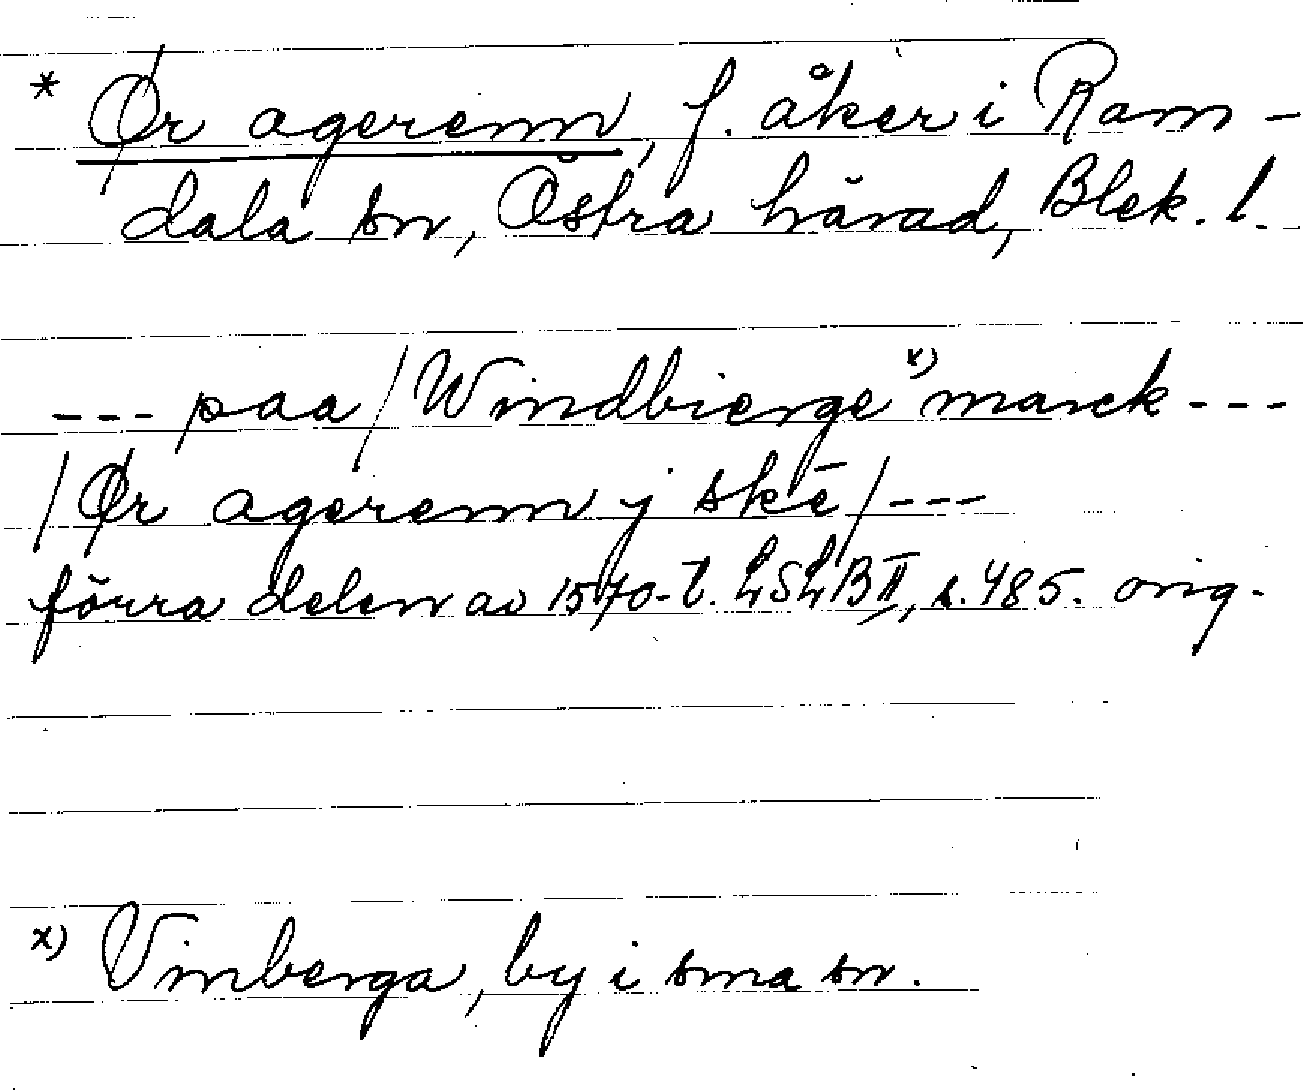 * Ør agerenn, f. åker i Ram-
dala sn, Östra härad, Blek. l.
--- paa / Windbierge x) marck ---
/ Ør agerenn j skē / ---
förra delen av 1570-t. LSLB II, s. 485. orig.
x) Vinberga, by i sma sn.